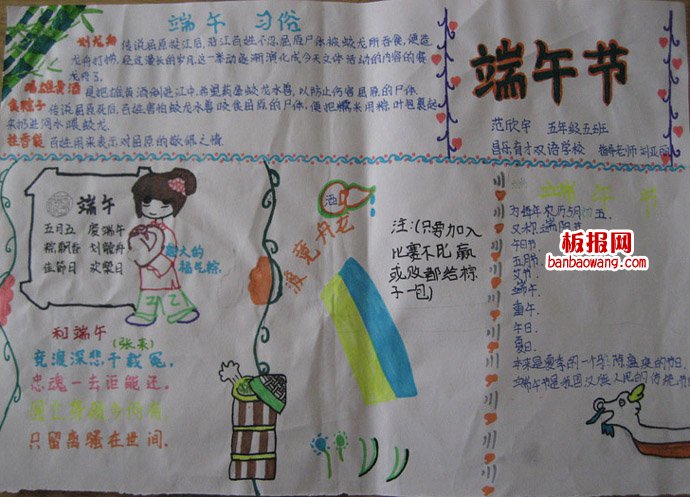 端午 习俗
划龙舟 传说屈原投江后,沿江百姓不忍屈原尸体被蛟龙所吞食,便造
龙舟打捞,经过漫长的岁月,这一举动逐渐演化成今天文体活动的内容的赛
龙舟了.
喝雄黄酒 是把雄黄酒倒进江中,希望药晕蛟龙水兽,以防止伤害屈原的尸体.
食粽子 传说屈原死后,百姓害怕蛟龙水兽咬食屈原的尸体,便把糯米用粽叶包裹起
来扔进河水喂蛟龙.
挂香袋 百姓用来表示对屈原的敬佩之情.
端午节
范欣宇 五年级五班
昌乐育才双语学校 指导老师
端午
五月五 庆端午
粽飘香 划龍舟
佳節日 欢聚日
大的
福气粽
和端午
(张耒)
竞渡深悲千载冤,
忠魂一去讵能还.
国亡身殒今何有,
只留离骚在世间.
酒
龙舟竞渡
注:(只劳加入
比赛不比赢
或败都给粽
子一包)
端午节
为每年农历5月初五,
又称端阳节
午日节.
五月节
艾节.
端午.
重午.
午日.
夏日.
本来是夏季的一个驱除瘟疫的节日,
端午节是我国汉族人民的传统节
板报网
banbaowang.com